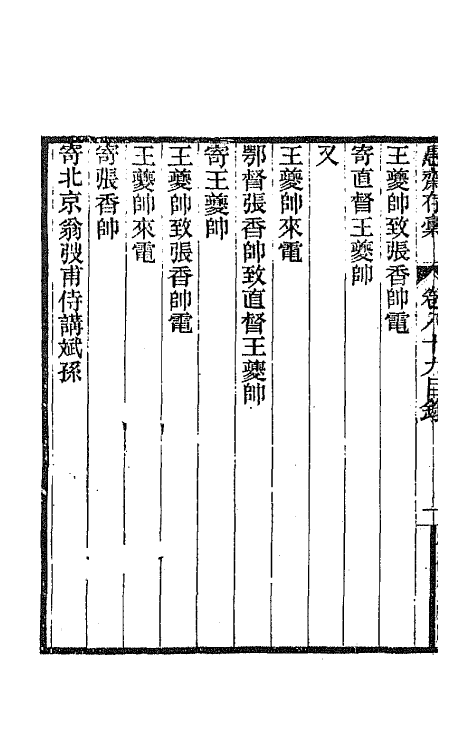 愚齋存稾 卷八十九目錄 二
王夔帥致張香帥電
寄直督王夔帥
又
王夔帥來電
鄂督張香帥致直督王夔帥
寄王夔帥
王夔帥致張香帥電
王夔帥來電
寄張香帥
寄北京翁弢甫侍講斌孫